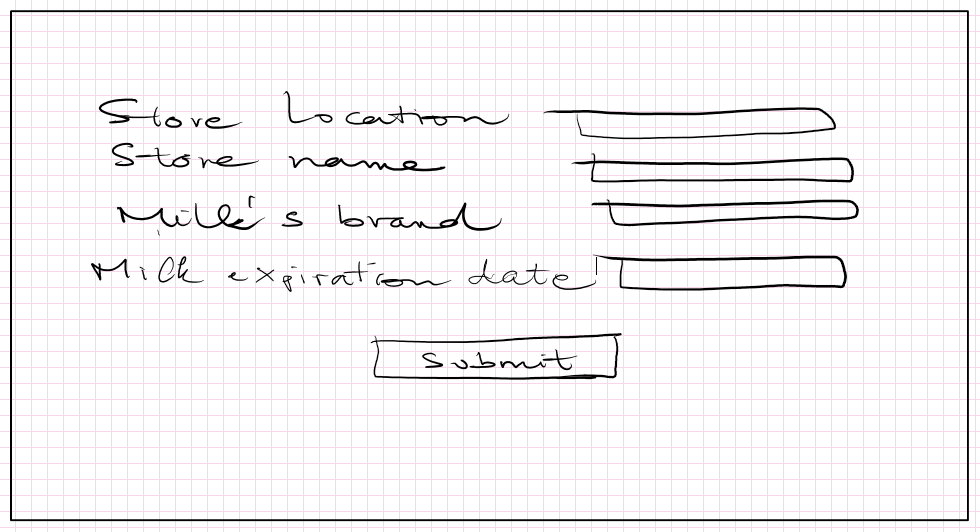 Store Location
Store name
Milk's brand
Milk expiration date
Submit